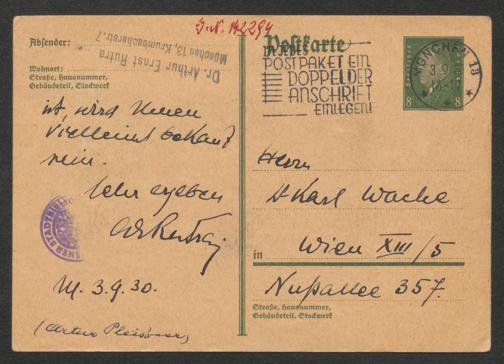 J.N. 142294
Postkarte
Absender:
Dr. Arthur Ernst Rutra
München 13, Krumbacherstr. 7
Wohnort:
Straße, Hausnummer,
Gebäudeteil, Stockwerk
IN JEDES
POSTPAKET EIN
DOPPEL DER
ANSCHRIFT
EINLEGEN!
MÜNCHEN 13
3.9
8 8
ist, wird Ihnen
vielleicht bekannt
sein.
Sehr ergeben
M. 3.9.30.
Herrn
Dr Karl Wache
in Wien XIII/5
Nußallee 357.
Straße, Hausnummer,
Gebäudeteil, Stockwerk